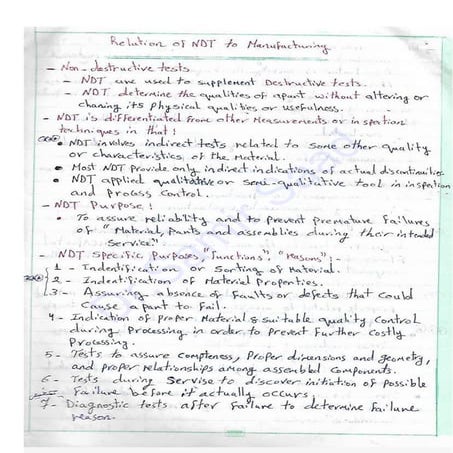 Relation of NDT to Manufacturing
- Non-destructive tests
- NDT are used to supplement Destructive tests.
- NDT determine the qualities of apart without altering or
chaning its physical qualities or usefulness.
- NDT is differentiated from other Measurements or inspection
techniques in that:
• NDT involves indirect tests related to some other quality
or characteristics of the Material.
• Most NDT provide only indirect indications of actual discontinuities
• NDT applied qualitative or semi-qualitative tool in inspection
and process control.
- NDT Purpose:
• To assure reliability and to prevent premature failures
of "Material, parts and assemblies during their intended
Service".
- NDT Specific Purposes "functions", "reasons":-
1- Indentification or Sorting of Material.
2- Indentification of Material Properties.
3- Assuring absence of Faults or defects that could
Cause a part to Fail.
4- Indication of proper Material & suitable quality Control
during Processing in order to prevent Further Costly
Processing.
5- Tests to assure compteness, Proper dimensions and geometry,
and proper relationships among assembled components.
6- Tests during Servise to discover initiation of possible
Failure before it actually occurs
7- Diagnostic tests after failure to determine failure
reason.